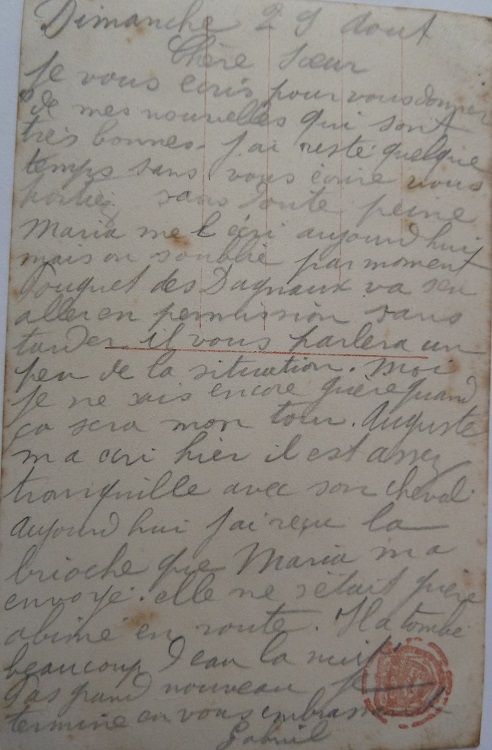 Dimanche 29 aout
Chère Sœur
Je vous ecris pour vous donner
de mes nouvelles qui sont
très bonnes. J'ai resté quelque
temps sans vous ecrire vous
portiez sans doute peine
Maria me l ecri aujourd hui
mais on soublie par moment
Pouquet des Dagnaux va sen
aller en permission sans
tarder il vous parlera un
peu de la situation. Moi
je ne sais encore guère quand
ça sera mon tour. Auguste
m a ecri hier il est assez
tranquille avec son cheval
Aujourd hui j'ai reçu la
brioche que Maria m a
envoyé. elle ne sétait guère
abimé en route. Il a tombé
beaucoup d eau la nuit
Pas grand nouveau je
termine en vous embrassant
Gabriel